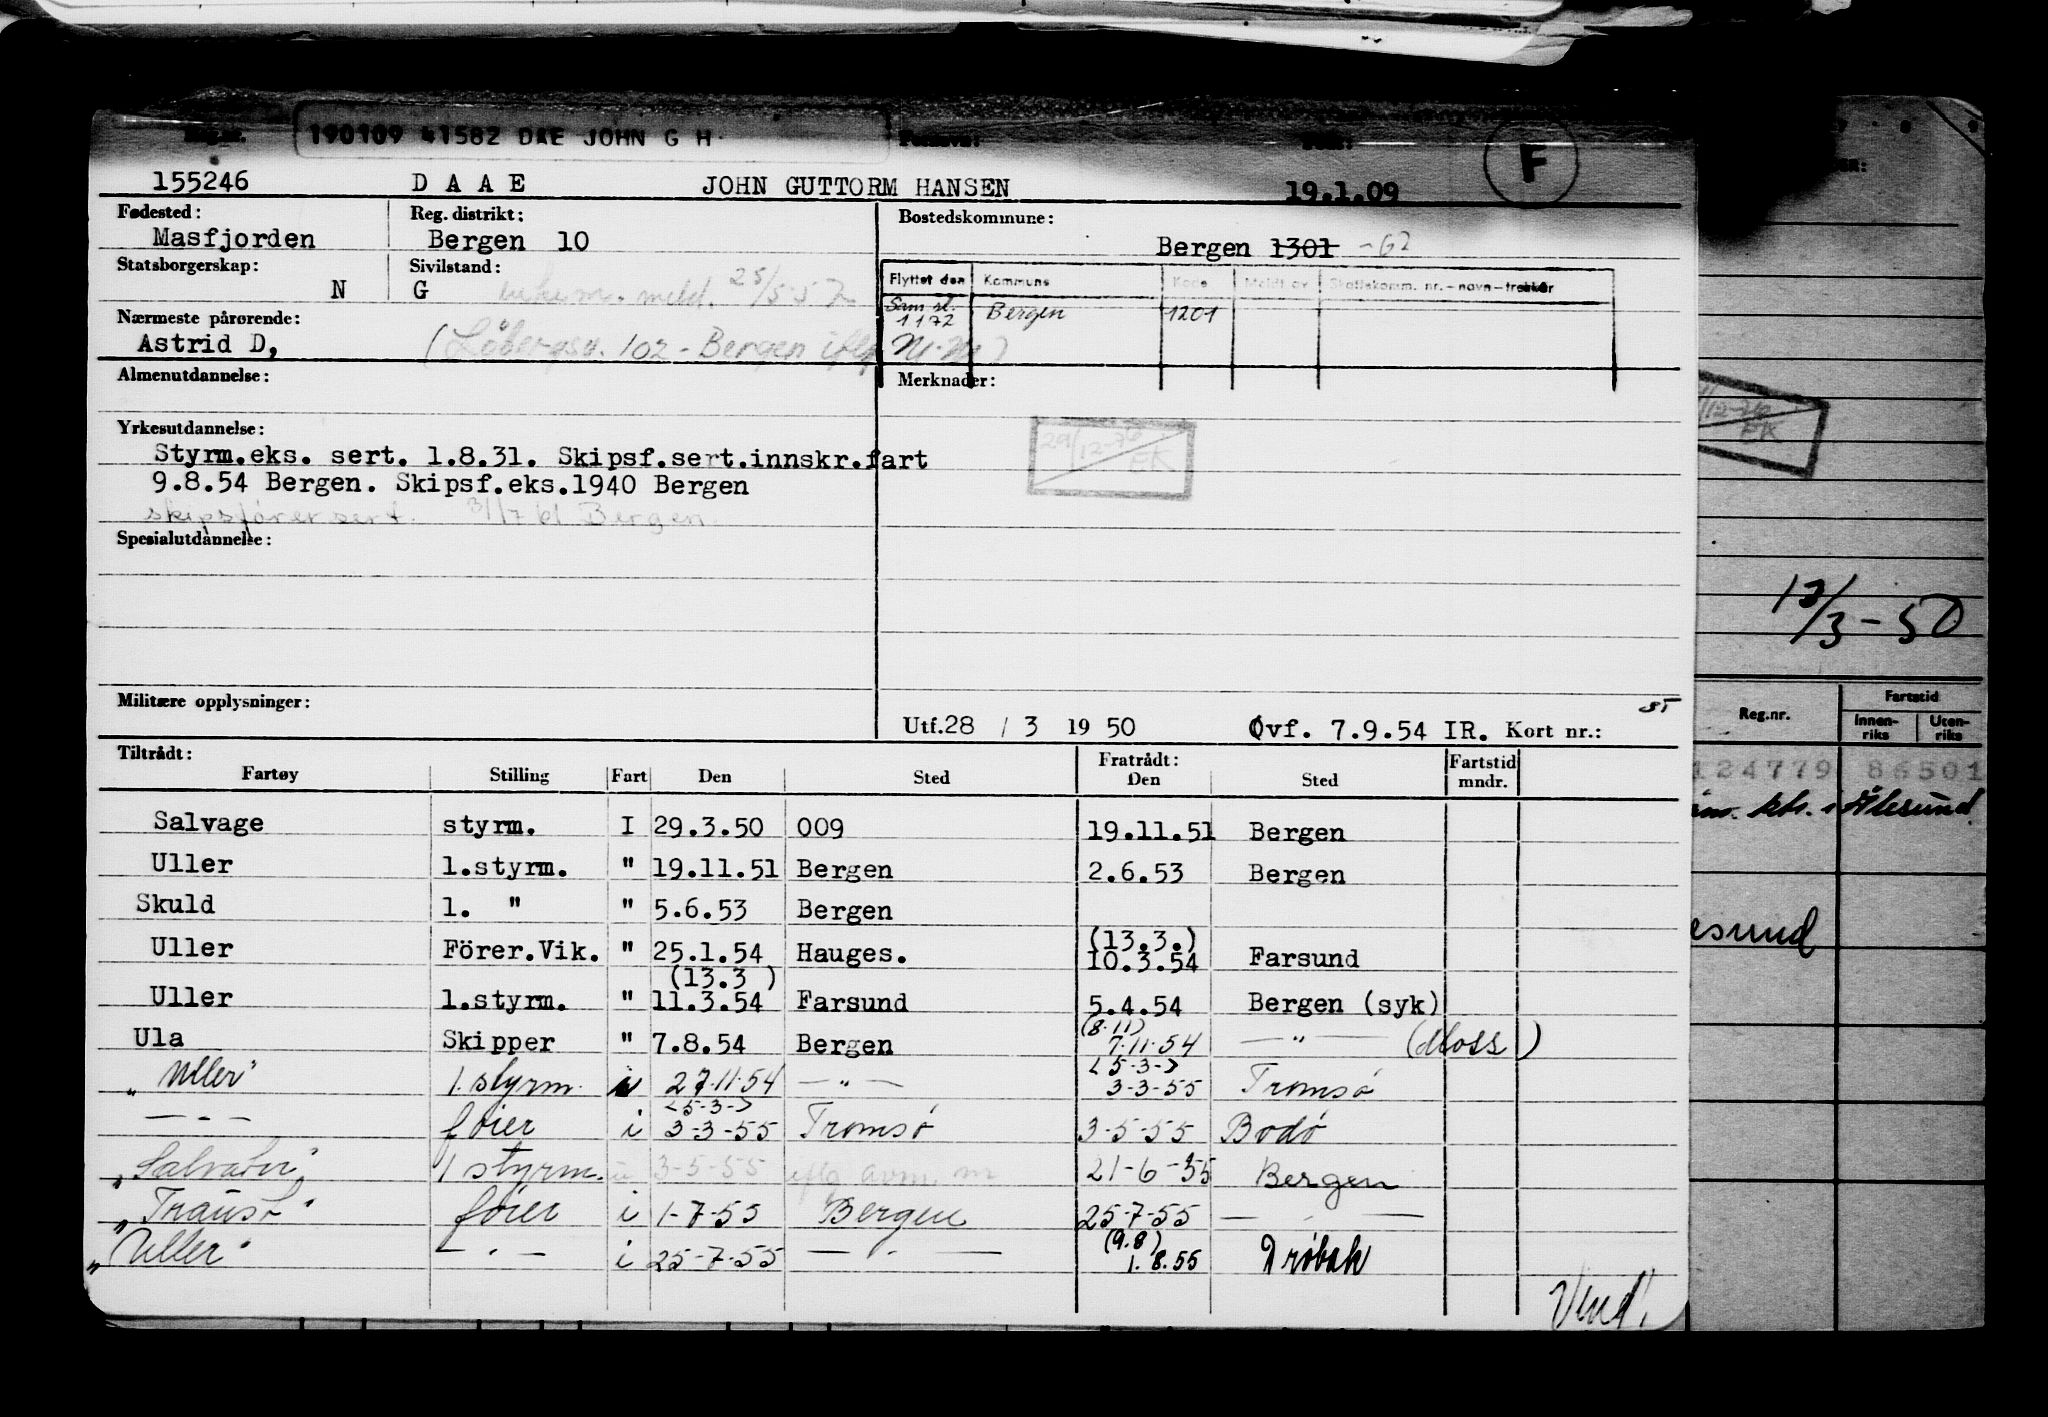 190109 41582 DAE JOHN G H
Fornavn:
F
155246 D A A E JOHN GUTTORM HANSEN 19.1.09
Fødested: Reg. distrikt: Bostedskommune:
Masfjorden Bergen 10 Bergen 1301 -67
Statsborgerskap: Sivilstand:
N G meld. 25/5-57
Flyttet den Kommune Kode Meldt av Skattekomm. nr. - navn - trekkår
Nærmeste pårørende: 1172 Bergen 1201
Astrid D, 102 - Bergen iflg
Almenutdannelse: Merknader:
Yrkesutdannelse:
Styrm.eks. sert. 1.8.31. Skipsf.sert.innskr.fart
9.8.54 Bergen. Skipsf.eks.1940 Bergen
skipsførersert. 31/7 61 Bergen.
29/12-76 EK
Spesialutdannelse:
Militære opplysninger:
Utf.28 / 3 19 50 Øvf. 7.9.54 IR. Kort nr.:
Tiltrådt: Fratrådt:
Fartøy Stilling Fart Den Sted Den Sted Fartstid mndr.
Salvage styrm. I 29.3.50 009 19.11.51 Bergen
Uller 1.styrm. " 19.11.51 Bergen 2.6.53 Bergen
Skuld 1. " " 5.6.53 Bergen
(13.3.)
Uller Förer.Vik. " 25.1.54 Hauges. 10.3.54 Farsund
(13.3 )
Uller 1.styrm. " 11.3.54 Farsund 5.4.54 Bergen (syk)
(8.11)
Ula Skipper " 7.8.54 Bergen 7.11.54 — " — (Moss )
<5-3->
"Uller" 1.styrm. i 27.11.54 — " — 3-3-55 Tromsø
<5-3->
— " — fører i 3-3-55 Tromsø 3-5-55 Bodø
1 styrm. u 3-5-55 iflg avm. m 21-6-55 Bergen
fører i 1-7-55 Bergen 25-7-55 — " —
(9.8)
"Uller" — " — i 25-7-55 — " — 1.8.55 Drøbak
Vend!
12-76
EK
13/3-50
Reg.nr. Fartstid
Innen-riks Uten-riks
124779 86501
Ålesund
esund